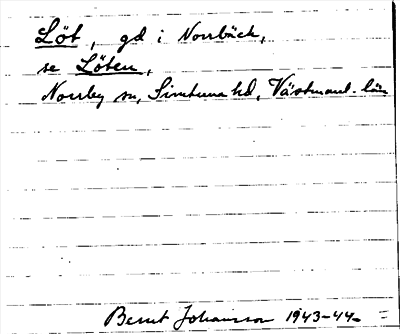 Löt, gd i Norrbäck,
se Löten,
Norrby sn, Simtuna hd, Västmanl. län
Bernt Johansson 1943-44